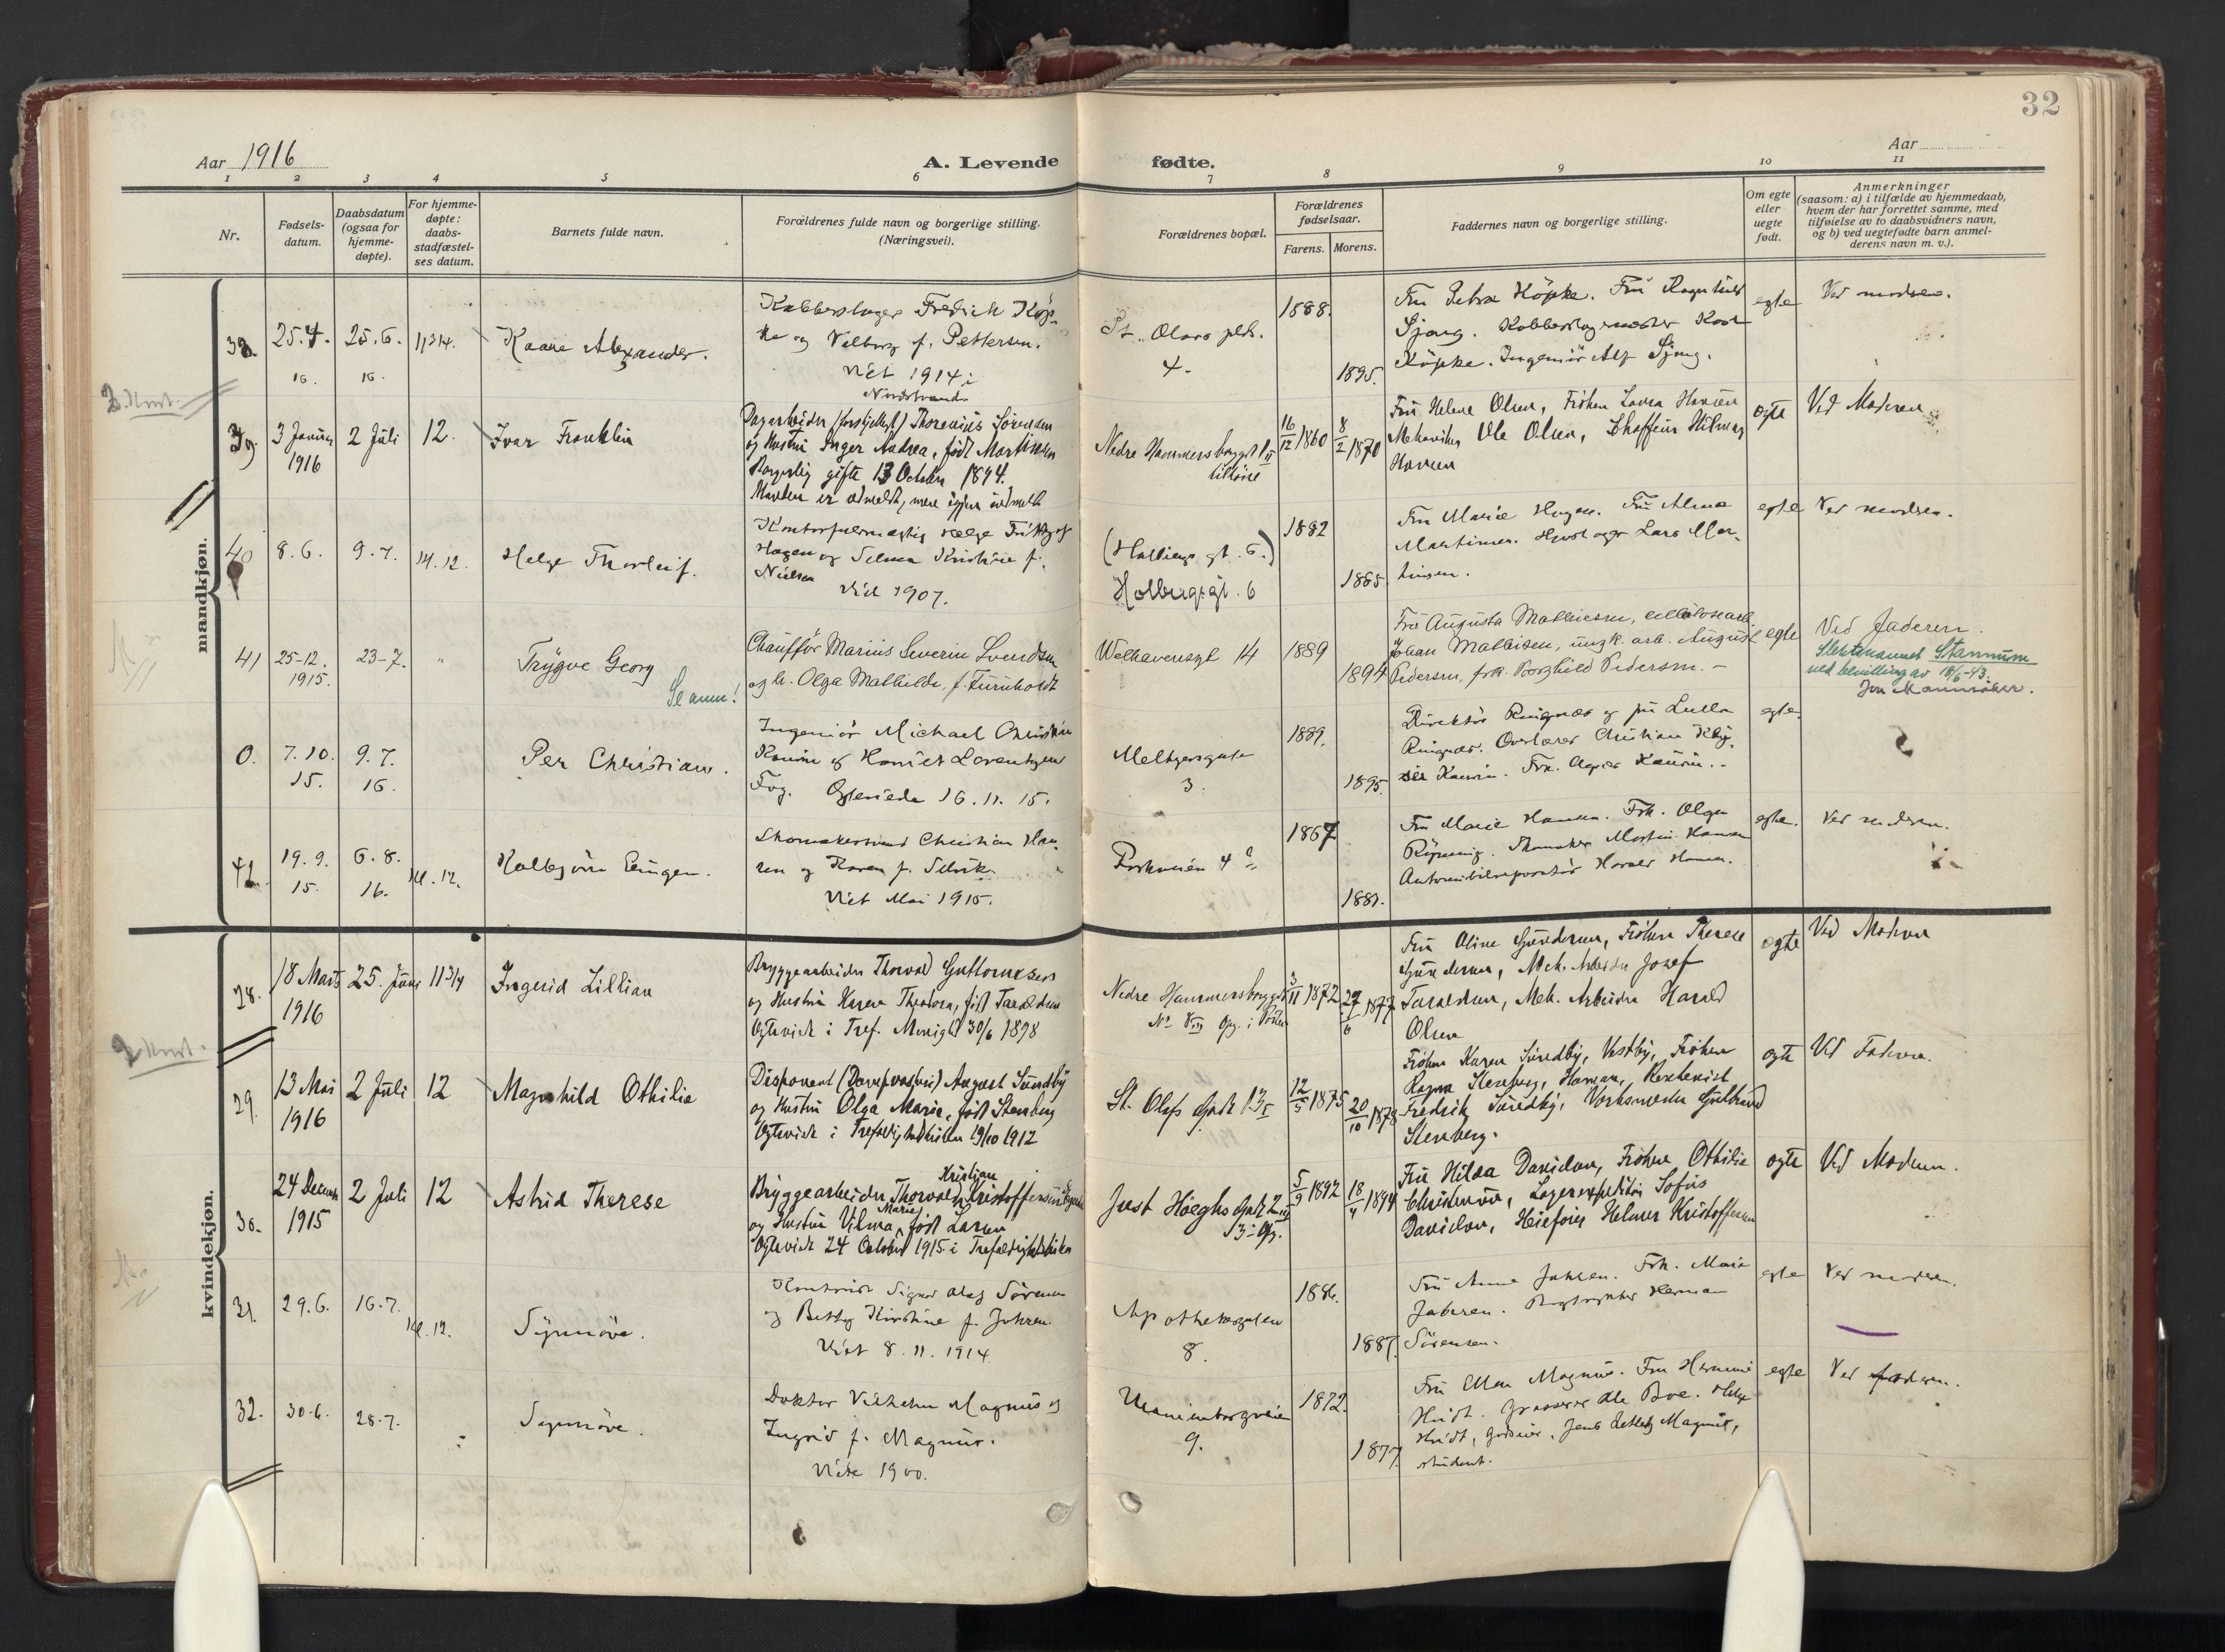 32
Aar 1916
A. Levende fødte.
Aar
1 2 3 4 5 6 7 8 9 10 11
Nr.
Fødsels-
datum.
Daabsdatum
(ogsaa for
hjemme-
døpte).
For hjemme-
døpte:
daabs-
stadfæstel-
ses datum.
Barnets fulde navn.
Forældrenes fulde navn og borgerlige stilling.
(Næringsvei).
Forældrenes bopæl.
Forældrenes
fødselsaar.
Farens. Morens.
Faddernes navn og borgerlige stilling.
Om egte
eller
uegte
født.
Anmerkninger
(saasom: a) i tilfælde av hjemmedaab,
hvem der har forrettet samme, med
tilføielse av to daabsvidners navn,
og b) ved uegtefødte barn anmel-
derens navn m. v.).
mandkjøn.
38.
25.4.
16.
25.6.
16.
11 3/4.
Kaare Alexander.
Kobberslager Fredrich Köp-
ke og Valborg f. Pettersen.
Viet 1914 i
Nordstrand
St. Olavs plds.
4.
1888.
1895.
Fru Petra Köpke. Fru Ragnhild
Sjong. Kobberslagermester Karl
Köpke. Ingeniör Alf Sjong.
egte
Ved moderen.
39.
3 Januar
1916
2 Juli
12.
Ivar Franklin
Dagarbeider (forskjelligt) Thorenius Sörensen
og Hustru Inger Andrea, født Martinsen
Borgerlig gifte 13 October 1894.
Manden er utmeldt, mere igjen indmeldt
Nedre Hammersborggt 1 II
tilhøire
16/12 1860
8/2 1870
Fru Helene Olsen, Frøken Laura Hansen
Mekaniker Ole Olsen, Chaffeur Hilmar
Hansen
egte
Ved Moderen
40
8.6.
9.7.
kl. 12.
Helge Thorleif.
Kontorfuldmægtig Helge Frithjof
Hagen og Selma Kristine f.
Nielsen
Viet 1907.
(Hallings gt. 6.)
Holbergsgt. 6
1882
1885.
Fru Marie Hagen. Fru Alma
Martinsen. Lars Mar-
tinsen.
egte
Ved moderen.
41
25-12.
1915.
23-7.
"
Trygve Georg
Se anm!
Chauffør Marius Severin Svendsen
og h. Olga Mathilde, f. Furuholdt
Welhavensgt 14
1889
1894
Fru Augusta Mathiesen, cellulosearb.
Johan Mathisen, ungk. arb. August
Pedersen, frk. Borghild Pedersen. -
egte
Ved Faderen.
Slektsnavnet Stamnum
ved bevilling av 18/6-43.
Jon Mannsåker.
0.
7.10.
15.
9.7.
16.
Per Christian.
Ingeniør Michael Christian
Kaurin og Harriet Lovenkjow
Fog. 16.11.15.
Meltzersgate
3.
1889.
1895.
Direktør Ringnæs og fru Lulla
Ringnæs. Overlærer Christian
Kaurin. Frk. Agnes Kaurin.
egte.
42.
19.9.
15.
6.8.
16.
kl. 12.
Kolbjørn Eugen.
Skomakersvend Christian Han-
sen og Karen f. Selvik
Viet Mai 1915.
Parkveien 4 a
1867
1881.
Fru Marie Hansen. Frk. Olga
Röpning. Skomaker Martin Hansen
Automobilreparatør Harald Hansen.
egte.
Ved moderen.
kvindekjøn.
28.
18 Marts
1916
25. Juni
11 3/4
Ingrid Lillian
Bryggearbeider Thorvald Guttormsen
og Hustru Karen Theodora, født Taraldsen
Egteviet i Tref. Menighed 30/6 1898
Nedre Hammersborggt
No 8 III Opg. i Porten
3/11 1872
27/6 1877
Fru Oline Gundersen, Frøken Therese
Gundersen, Mek. Arbeider Josef
Taraldsen, Mek. Arbeider Harald
Olsen
egte
Ved Moderen
29.
13 Mai
1916
2 Juli
12
Magnhild Othilie
Disponent (Dampvaskeri) August Sundby
og Hustru Olga Marie, født Stenberg
Egteviet i Trefoldighedskirken 19/10 1912
St. Olafs Gade 13 I
12/5 1875
20/10 1878
Frøken Karen Sundby, Vestby, Frøken
Ragna Stenberg, Hamar,
Fredrik Sundby, Verksmester Gulbrand
Stenberg.
egte
Ved Faderen.
30.
24 Decemb
1915
2 Juli
12
Astrid Therese
Kristian
Bryggearbeider Thorvald Kristoffersen
Marie
og Hustru Vilma, født Larsen
Egteviet 24 October 1915 i Trefoldighedskirken
Just Høeghs Gade 2
3 Opg.
5/9 1892
18/4 1894
Fru Hilda Davidsen, Frøken Othilie
Christensen, Lagerexpeditør Sofus
Davidsen, Helmer Kristoffersen
egte
Ved Moderen.
31.
29.6.
16.7.
kl. 12.
Synnöve.
Kontorist Sigurd Olaf Sörensen
og Betty Kirstine f. Johsen.
Viet 8.11.1914
Apothekergaten
8.
1886.
1887.
Fru Anna Johsen. Frk. Marie
Johsen. Herman
Sörensen.
egte
Ved moderen.
32.
30-6.
28-7.
Synnöve.
Doktor Vilhelm Magnus og
Ingrid f. Magnus.
Viet 1900.
Uranienborgveien
9.
1872.
1877.
Fru Elen Magnus. Fru Hermine
Hvidt. Grosserer Ole Bve. Helge
Hvidt, Jens Magnus,
student.
egte
Ved faderen.